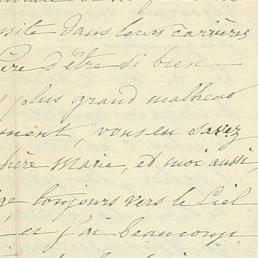 site dans leurs carrières
d'être si bien
plus grand malheur
ment, vous en savez
chère Marie, et moi aussi,
toujours vers le Ciel
et j'ai beaucoup